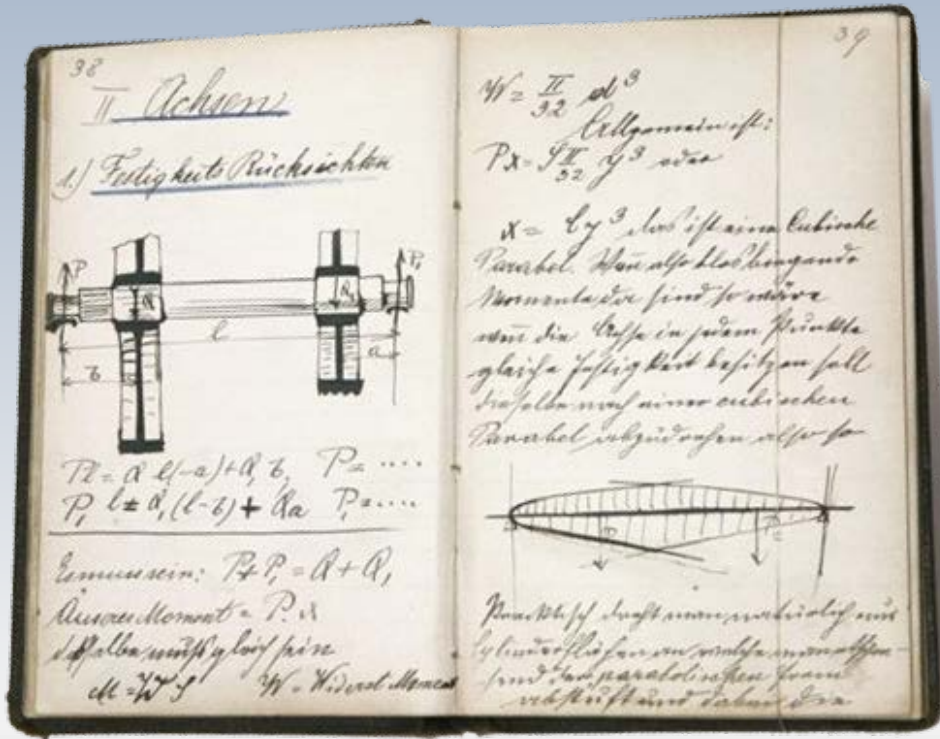 38
II Achsen
1.) Festigkeits Rücksichten
P
P₁
Q
Q₁
l
a
b
Pl = Q l(-a) + Q, b, P = ....
P, l = Q, (l-b) + Qa P, = ....
Es muss sein: P + P, = Q + Q,
Äusseres Moment = P. x
dasselbe muß gleich sein
M = W S W = Widerst Moment
39
W = π/32 d³
Allgemein ist:
Px = S π/32 y³ oder
x = C y³ das ist eine Cubische
Parabel. Wenn also blos biegende
Momente da sind so wäre
wenn die Achse in jedem Punkte
gleiche Festigkeit besitzen soll
dieselbe nach einer cubischen
Parabel abzudrehen also so
Praktisch dreht man natürlich nur
Cylinderflächen an welche man
der parabolischen Form
abstuft und dabei die